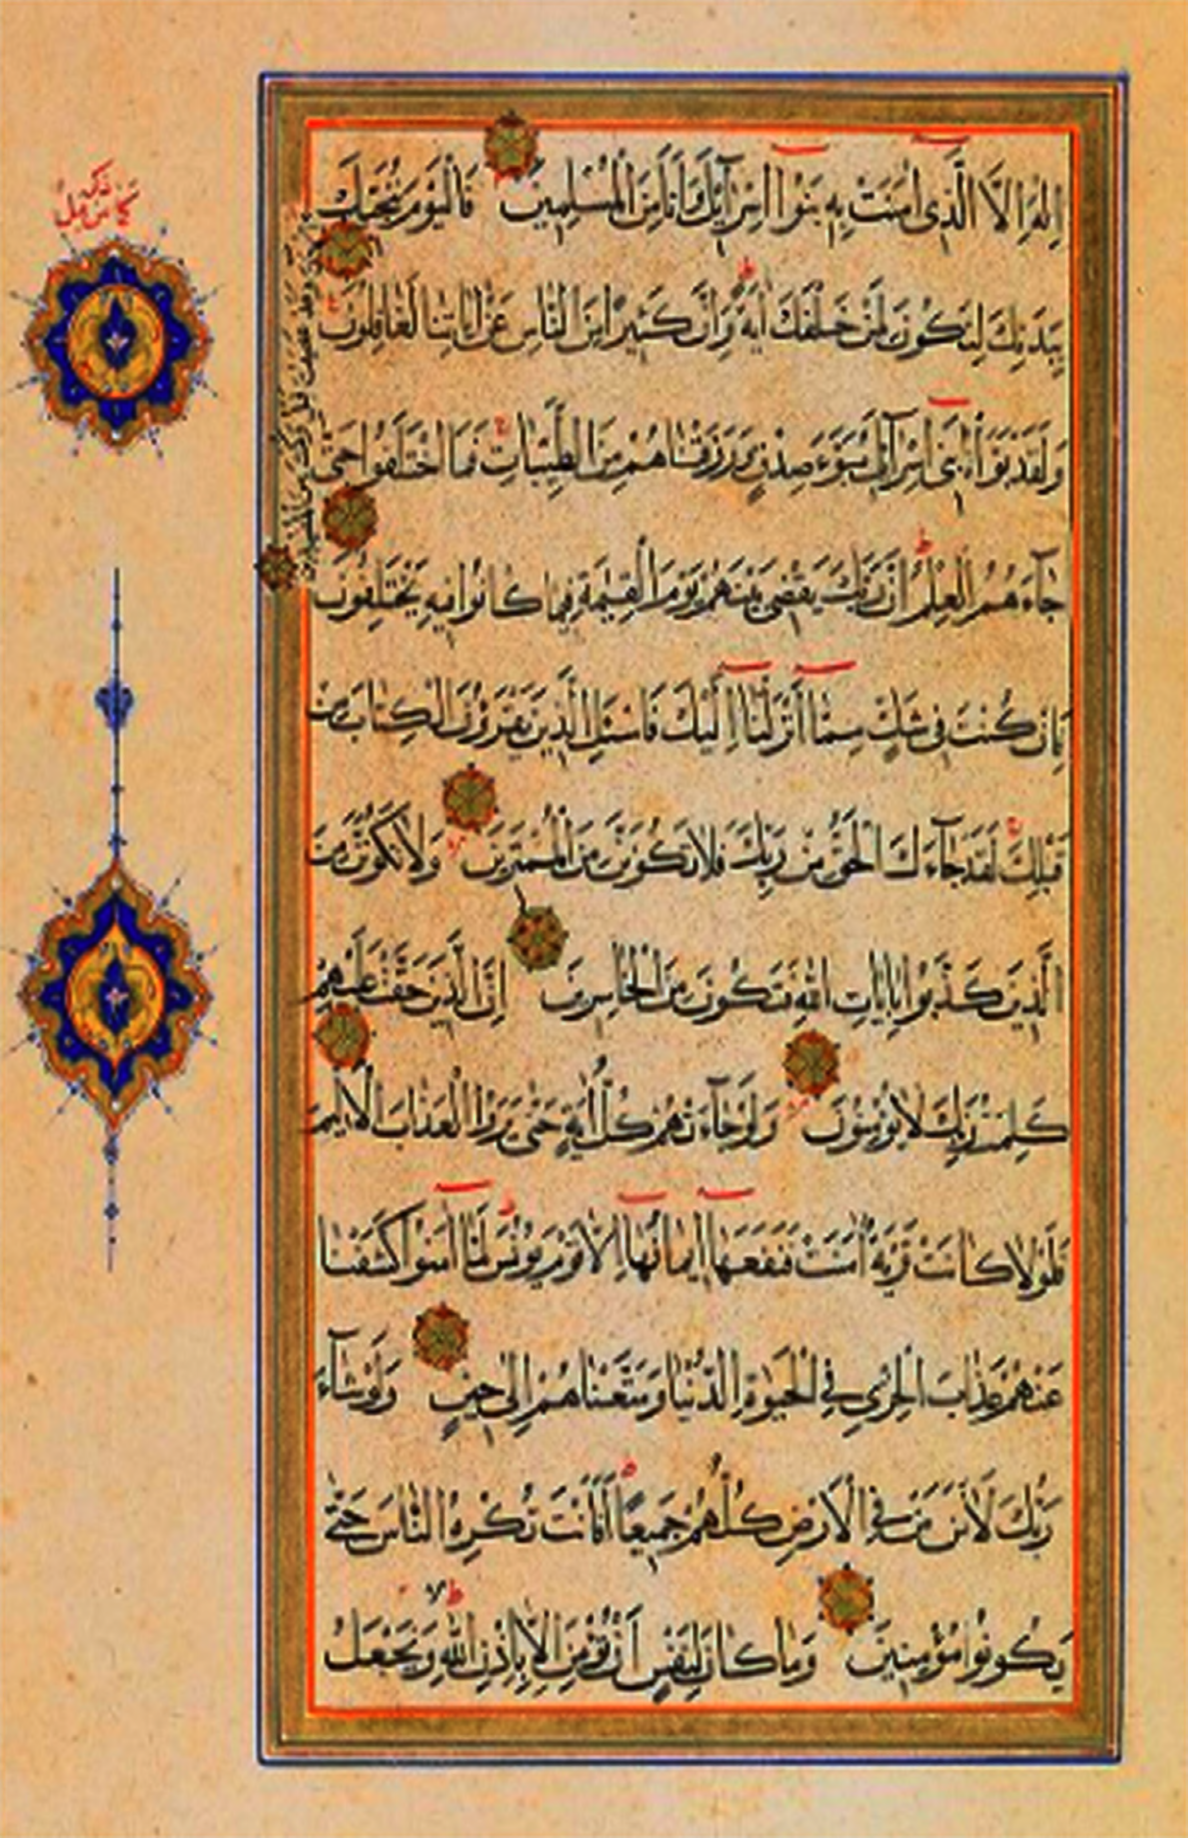 اِلٰهَ اِلَّا الَّذِى اٰمَنَتْ بِهِ بَنُوا اِسْرَآئِيلَ وَاَنَا مِنَ الْمُسْلِمِينَ فَالْيَوْمَ نُنَجِّيكَ
بِبَدَنِكَ لِتَكُونَ لِمَنْ خَلْفَكَ اٰيَةً وَاِنَّ كَثِيرًا مِنَ النَّاسِ عَنْ اٰيَاتِنَا لَغَافِلُونَ
وَلَقَدْ بَوَّأْنَا بَنِى اِسْرَآئِيلَ مُبَوَّءَ صِدْقٍ وَرَزَقْنَاهُمْ مِنَ الطَّيِّبَاتِ فَمَا اخْتَلَفُوا حَتّٰى
جَآءَهُمُ الْعِلْمُ اِنَّ رَبَّكَ يَقْضِى بَيْنَهُمْ يَوْمَ الْقِيٰمَةِ فِيمَا كَانُوا فِيهِ يَخْتَلِفُونَ
فَاِنْ كُنْتَ فِى شَكٍّ مِمَّا اَنْزَلْنَا اِلَيْكَ فَاسْئَلِ الَّذِينَ يَقْرَؤُنَ الْكِتَابَ مِنْ
قَبْلِكَ لَقَدْ جَآءَكَ الْحَقُّ مِنْ رَبِّكَ فَلَا تَكُونَنَّ مِنَ الْمُمْتَرِينَ وَلَا تَكُونَنَّ مِنَ
الَّذِينَ كَذَّبُوا بِاٰيَاتِ اللّٰهِ فَتَكُونَ مِنَ الْخَاسِرِينَ اِنَّ الَّذِينَ حَقَّتْ عَلَيْهِمْ
كَلِمَتُ رَبِّكَ لَا يُؤْمِنُونَ وَلَوْ جَآءَتْهُمْ كُلُّ اٰيَةٍ حَتّٰى يَرَوُا الْعَذَابَ الْاَلِيمَ
فَلَوْلَا كَانَتْ قَرْيَةٌ اٰمَنَتْ فَنَفَعَهَا اِيمَانُهَا اِلَّا قَوْمَ يُونُسَ لَمَّا اٰمَنُوا كَشَفْنَا
عَنْهُمْ عَذَابَ الْخِزْىِ فِى الْحَيٰوةِ الدُّنْيَا وَمَتَّعْنَاهُمْ اِلٰى حِينٍ وَلَوْ شَآءَ
رَبُّكَ لَاٰمَنَ مَنْ فِى الْاَرْضِ كُلُّهُمْ جَمِيعًا اَفَاَنْتَ تُكْرِهُ النَّاسَ حَتّٰى
يَكُونُوا مُؤْمِنِينَ وَمَا كَانَ لِنَفْسٍ اَنْ تُؤْمِنَ اِلَّا بِاِذْنِ اللّٰهِ وَيَجْعَلُ